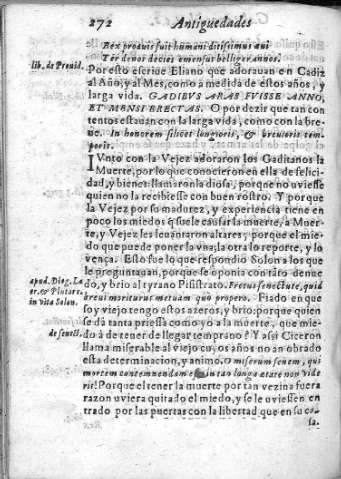 272 Antiguedades
Rex produis fuit humani ditissimus aui
Ter denos decies emensus belliger annos.
lib. de Prouid.
Por esto escriue Eliano que adorauan en Cadiz
al Año, y al Mes, como a medida de estos años, y
larga vida. GADIBVS ARAS FVISSE ANNO,
ET MENSI ERECTAS. O por dezir que tan con
tentos estauan con la larga vida, como con la bre-
ue. In honorem silicet longioris, & breuioris tem-
poris.
IVnto con la Vejez adoraron los Gaditanos la
Muerte, por lo que conocieron en ella de felici-
dad, y bien: llamaronla diosa, porque no uviesse
quien no la recibiesse con buen rostro. Y porque
la Vejez por su madurez, y experiencia tiene en
poco los miedos q̃ suele causar la muerte, a Muer-
te, y Vejez les leuantaron altares, porque el mie-
do que puede poner la vna; la otra lo reporte, y lo
vença. Esto fue lo que respondio Solon a los que
le preguntauan, porque se oponia con tãto denue
do, y brio al tyrano Pisistrato. Fretus senectute, quid
breui moriturus metuam quò propero. Fiado en que
soy viejo tengo estos azeros, y brio: porque quien
se dà tanta priessa como yo a la muerte, que mie-
do à de tener de llegar temprano? Y assi Ciceron
llama miserable al viejo cuyos años no an obrado
esta determinacion, y animo. O miserum senem, qui
mortem contemnendam esse in tan longa ætate non vide
rit! Porque el tener la muerte por tan vezina fuera
razon uviera quitado el miedo, y se le uviessen en
trado por las puertas con la libertad que en su ca-
sa.
apud. Diog. La
er. & Plutarc.
in vita Solon.
de senect.